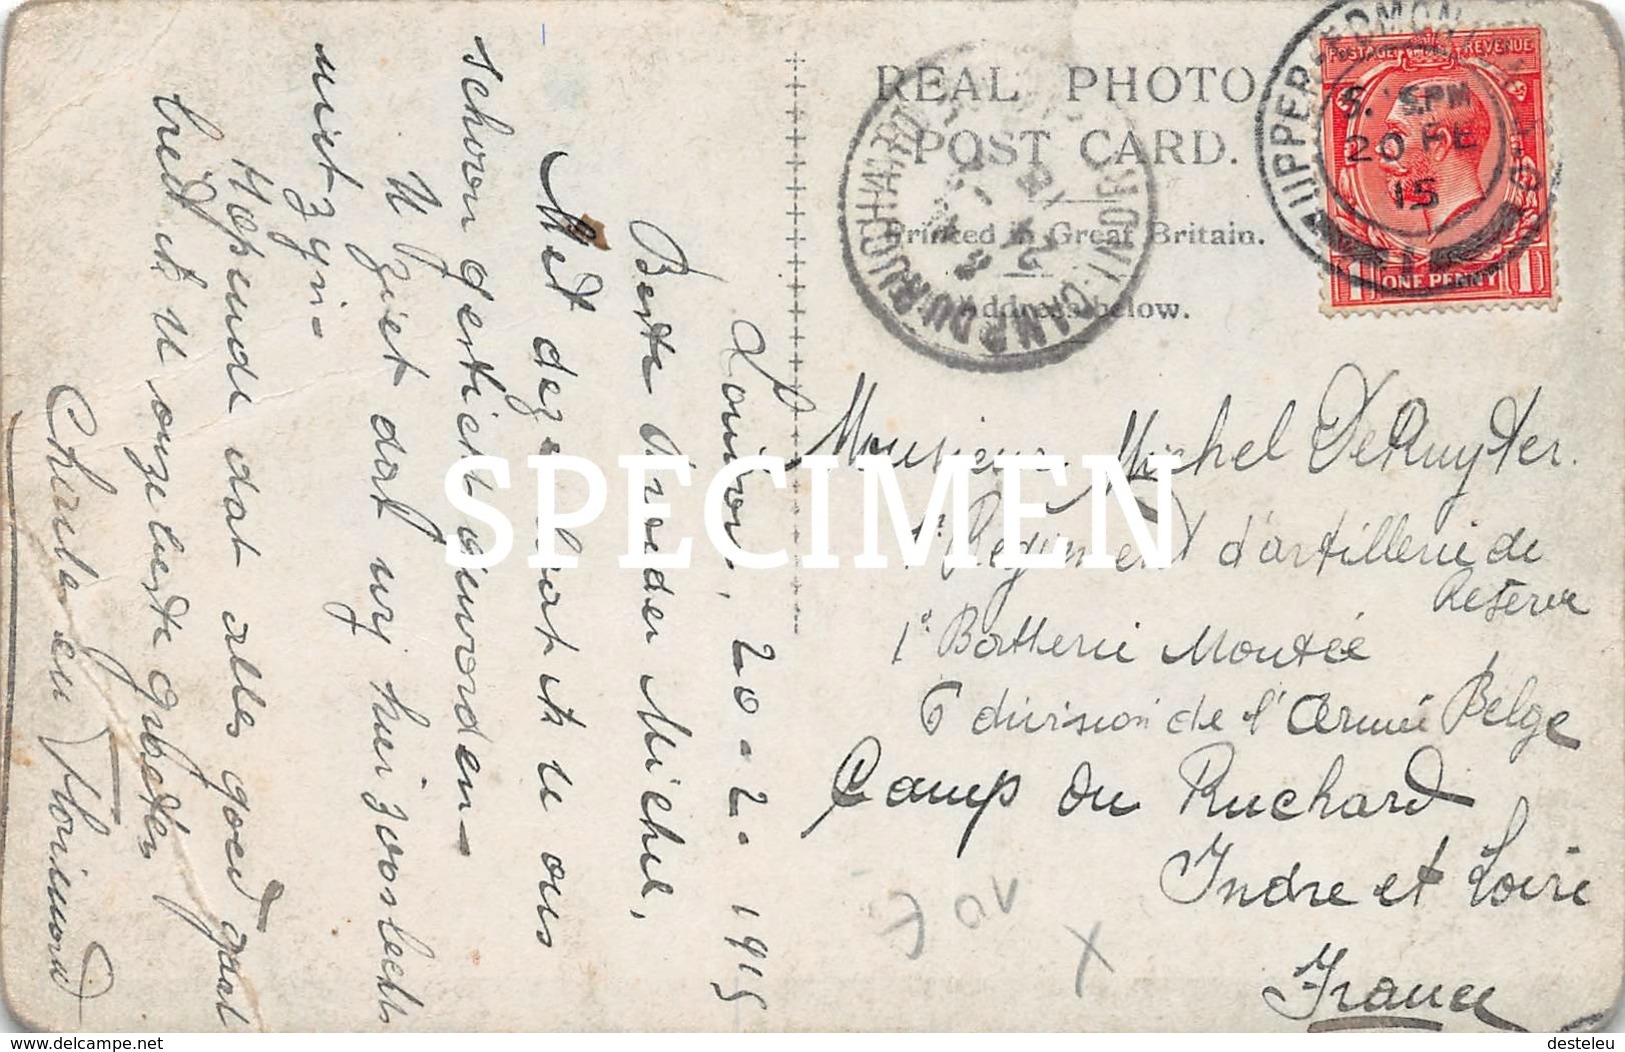 REAL PHOTO
POST CARD.
Printed in Great Britain.
Address below.
POSTAGE REVENUE
1 ONE PENNY 1
UPPER EDMONTON
5. PM
20 FE
15
CAMP DU RUCHARD
INDRE
London, 20-2-1915
Beste Broeder Michel,
Met deze laat ik u ons
schoon gesticht
U ziet dat wy hier zoo slecht
niet zyn-
Hopende dat alles goed gaat
bied ik U onze beste
Charle en Florimond
Monsieur Michel DeRuyter.
1e Regiment d'artillerie de
Reserve
1e Batterie Montée
6 division de l'Armée Belge
Camp du Ruchard
Indre et Loire
France
X
SPECIMEN
delcampe.net
desteleu